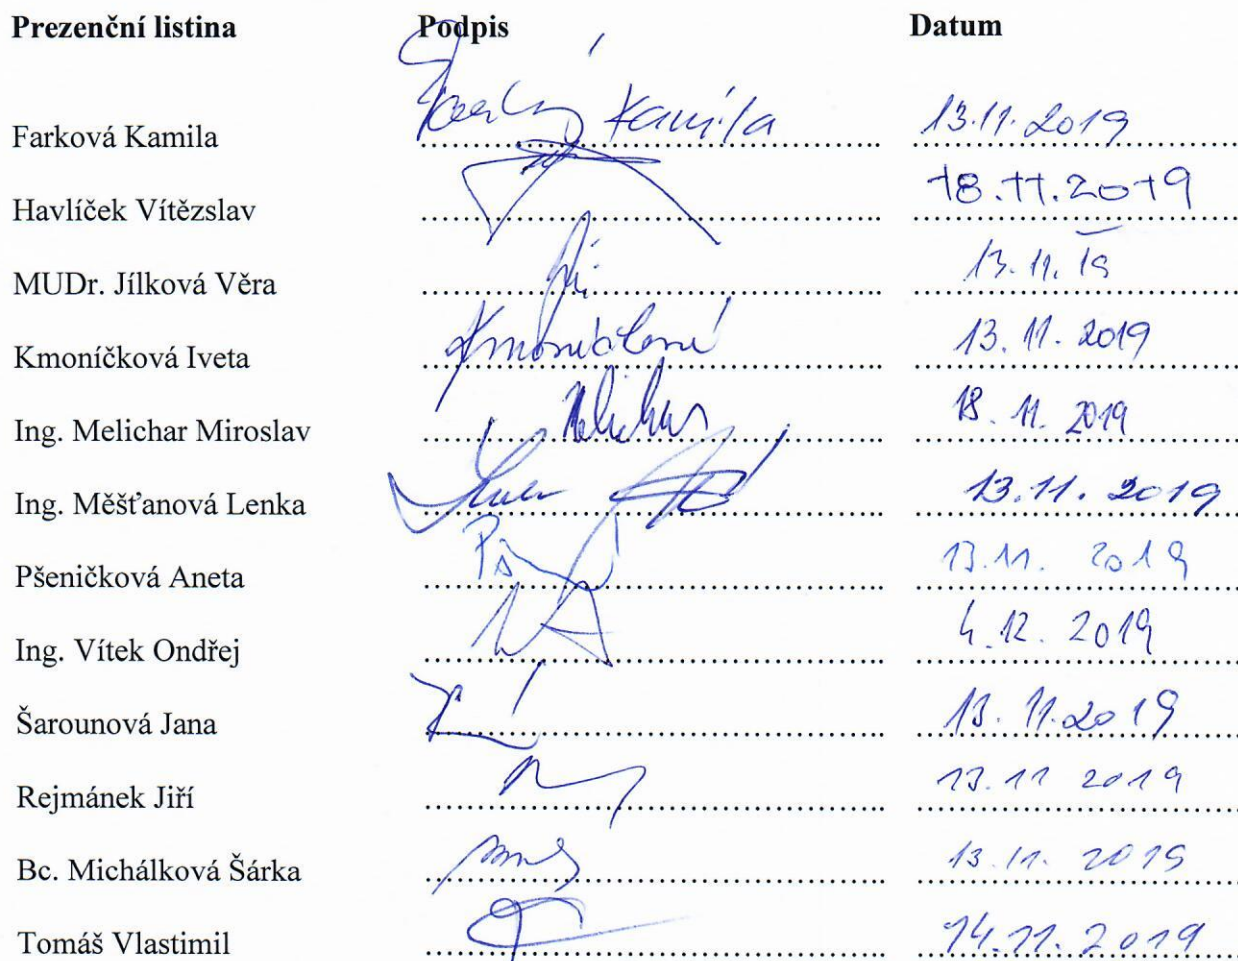 Prezenční listina Podpis Datum
Farková Kamila Kamila 13.11.2019
Havlíček Vítězslav 18.11.2019
MUDr. Jílková Věra 13.11.19
Kmoníčková Iveta 13.11.2019
Ing. Melichar Miroslav Melichar 18.11.2019
Ing. Měšťanová Lenka 13.11.2019
Pšeničková Aneta 13.11. 2019
Ing. Vítek Ondřej 4.12.2019
Šarounová Jana 13.11.2019
Rejmánek Jiří 13.11 2019
Bc. Michálková Šárka 13.11.2019
Tomáš Vlastimil 14.11.2019